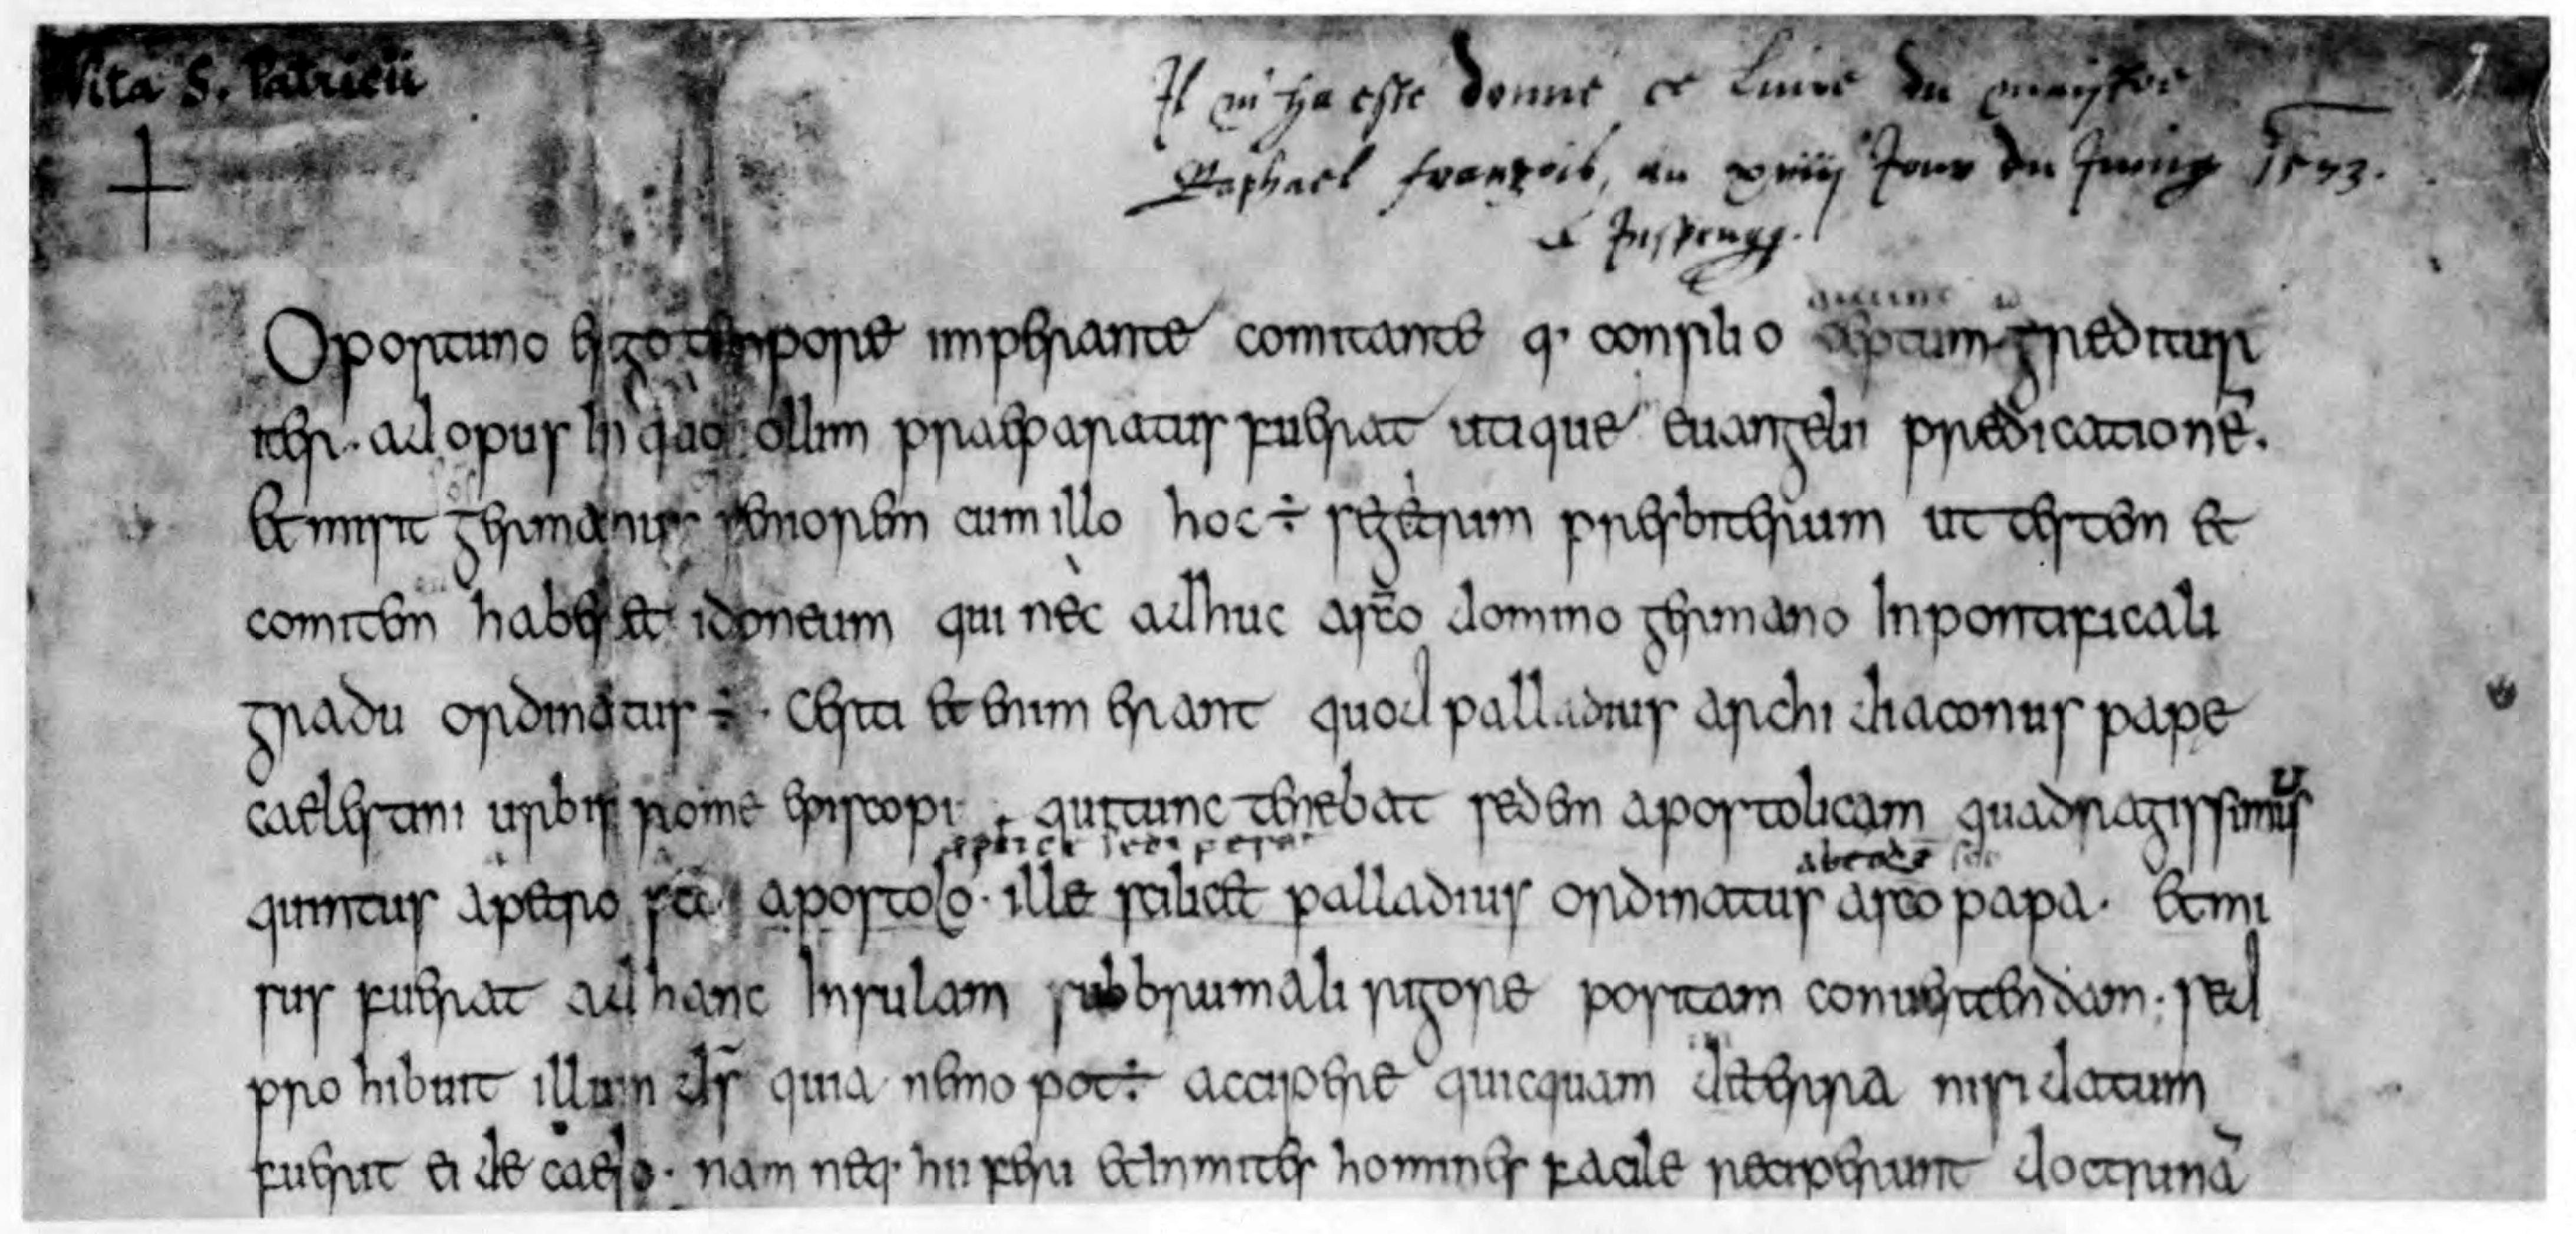 Vita S. Patricii
Il m'ha este donne ce Livre du maister
Raphael françois, au xviij Jour du Juing 1573.
a Insprugg.
Oportuno ergo tempore imperante comitante q· consilio aeptum greditur
iter· ad opus in quod ollim praeparatus fuerat utique euangelii predicationẽ.
et misit germanus seniorem cum illo hoc ÷ segerum presbiterium ut testem et
comitem haberet idoneum qui nèc adhuc asc̃o domino germano inpontificali
gradu ordinatus ÷· Certi etenim erant quod palladius archi diaconus pape
caelestini urbis rome episcopi · qui tunc tenebat sedem apostolicam quadragissimus
quintus apetro sc̃i apostolo· ille scilicet palladius ordinatus asco papa· et mi
sus fuerat ad hanc insulam subbrumali rigore positam conuertendam· sed
pro hibuit illum dr̃s quia nemo pot÷ accipere quicquam deterra nisi datum
fuerit ei de caelo· nam neq· hii feri et inmites homines facile reciperunt doctrinã